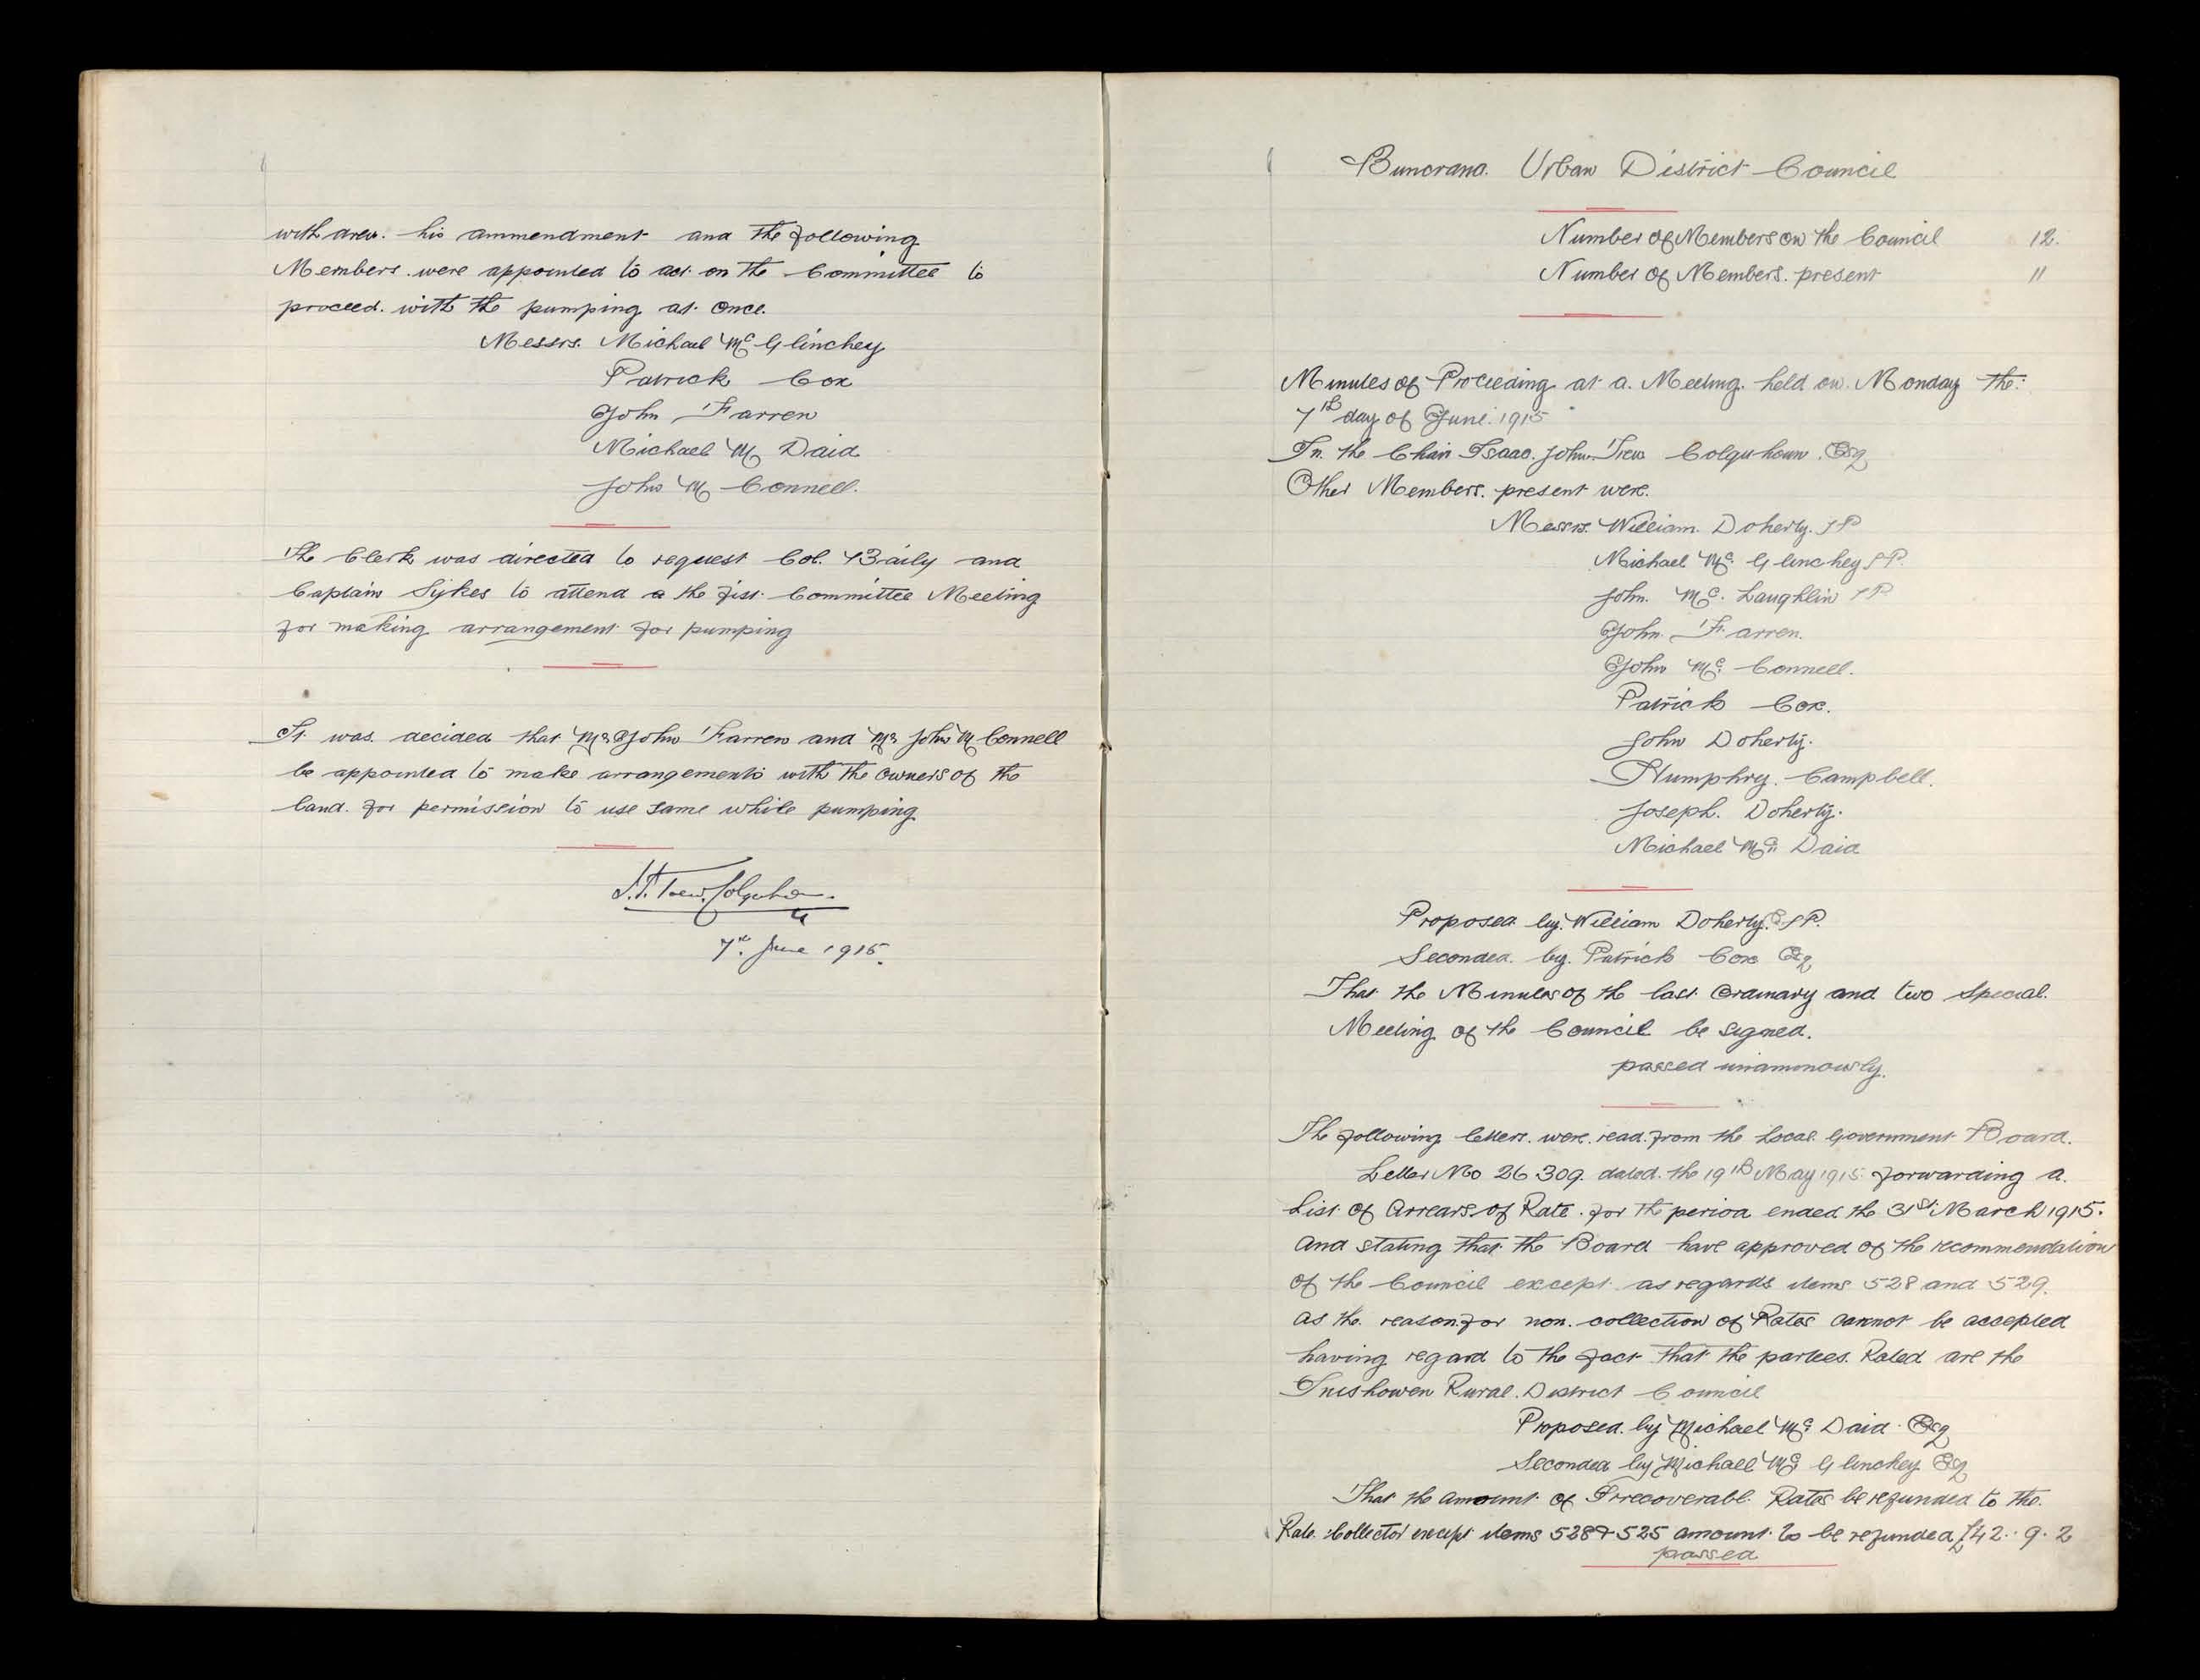 withdrew. his ammendment and the following
Members were appointed to act on the Committee to
proceed. with the pumping at once.
Messrs. Michael Mc Glinchey
Patrick Cox
John Farren
Michael Mc Daid
John Mc Connell.
The Clerk was directed to request Col. Baily and
Captain Sykes to attend a the first Committee Meeting
for making arrangement for pumping
It was decided that Mr John Farren and Mr John Mc Connell
be appointed to make arrangements with the owners of the
land. for permission to use same while pumping
Trew Colquhoun
7th June 1915.
Buncrana. Urban District Council
Number of Members on the Council 12.
Number of Members. present 11
Minutes of Proceeding at a. Meeting. held on. Monday the.
7th day of June. 1915
In the Chair Isaac. John. Trew Colquhoun. Esq
Other Members. present were.
Messrs. William. Doherty. JP
Michael Mc. Glinchey JP.
John. Mc. Laughlin JP
John. Farren.
John Mc. Connell.
Patrick Cox.
John Doherty.
Humphry. Campbell.
Joseph. Doherty.
Michael Mc. Daid
Proposed by. William Doherty. Esq JP.
Seconded. by. Patrick Cox Esq
That the Minutes of the last Ordinary and two Special.
Meeting of the Council be signed.
passed unammously.
The following letters. were. read. from the Local Government Board.
Letter No 26309. dated. the 19th May 1915. forwarding a.
List of Arrears of Rate. for the period ended the 31st March 1915.
and stating that the Board have approved of the recommendation
of the Council except as regards items 528 and 529.
as the reason for non. collection of Rates cannot be accepted
having regard to the fact that the parties. Rated are the
Inishowen Rural. District Council
Proposed. by Michael Mc. Daid. Esq
Seconded by Michael Mc. Glinchey Esq
That the amount of Irrecoverabl. Rates be refunded to the.
Rate. Collector except items 528 & 525 amount to be refunded £42. 9. 2
passed